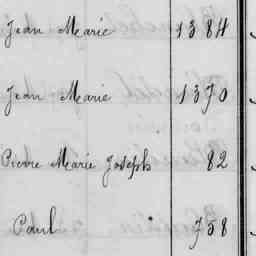 Jean Marie 1384
Jean Marie 1370
Pierre Marie Joseph 82
Paul 758